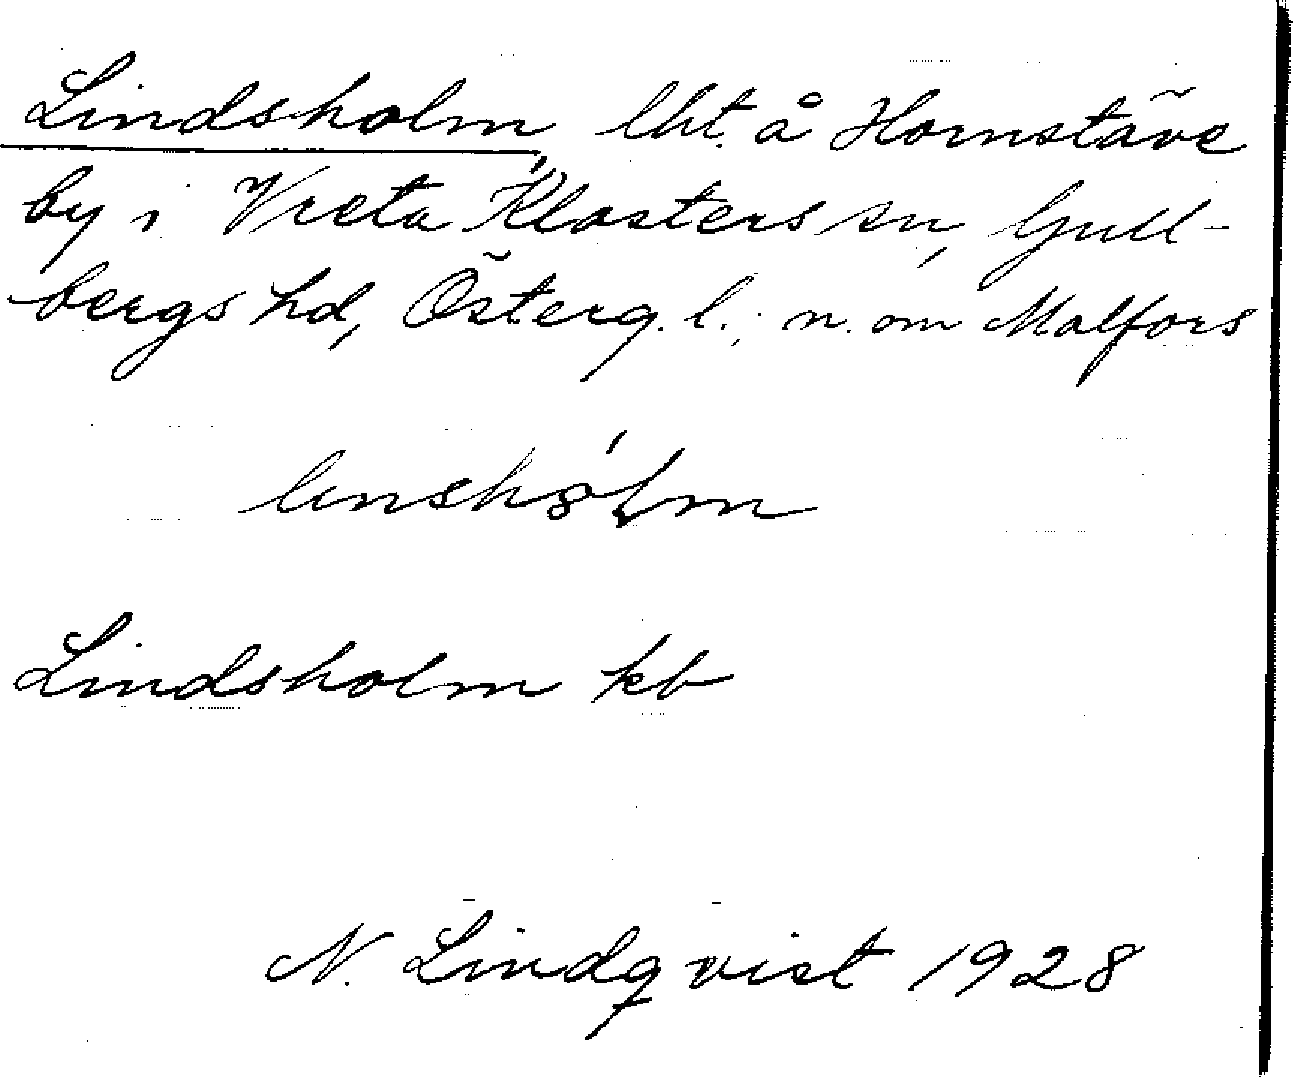 Lindsholm, lht. å Hornstäve
by i Vreta Klosters sn, Gull-
bergs hd, Österg. l.; n. om Malfors
Lindsholm kb
N. Lindqvist 1928